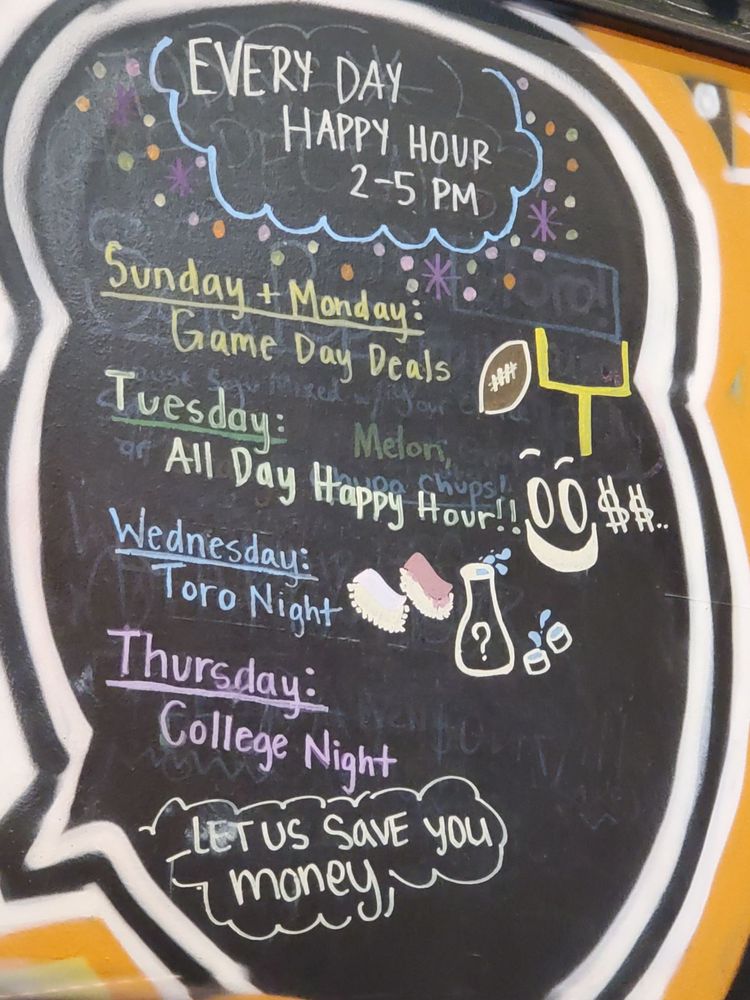 EVERY DAY
HAPPY HOUR
2-5 PM
Sunday + Monday:
Game Day Deals
Tuesday:
Melon,
All Day Happy Hour!!
$$..
Wednesday:
Toro Night
?
Thursday:
College Night
LET US SAVE YOU
money,